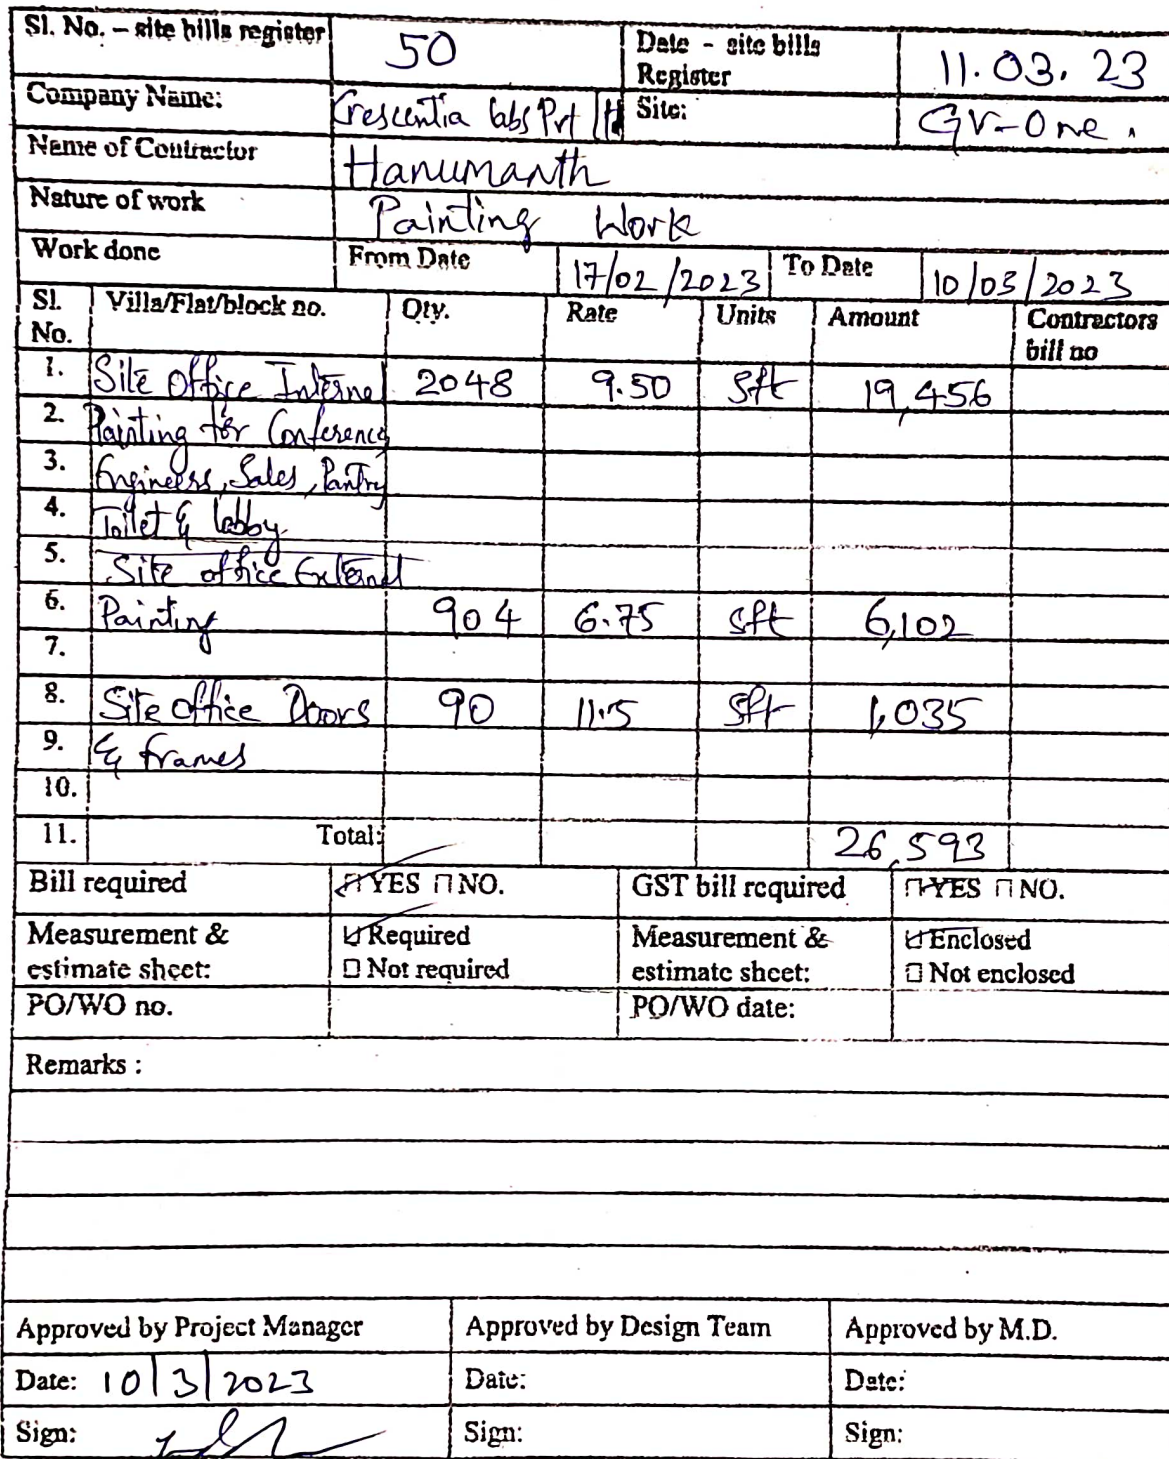 Sl. No. – site bills register 50 Date - site bills Register 11.03.23
Company Name: Crescentia labs Pvt ltd Site: GV-One.
Name of Contractor Hanumanth
Nature of work Painting Work
Work done From Date 17/02/2023 To Date 10/03/2023
Sl. No. Villa/Flat/block no. Qty. Rate Units Amount Contractors bill no
1. Site Office Internal 2048 9.50 sft 19,456
2. Painting for Conference
3. Engineers, Sales, Pantry
4. Toilet & lobby
5. Site office External
6. Painting 904 6.75 sft 6,102
7.
8. Site Office Doors 90 11.5 sft 1,035
9. & frames
10.
11. Total: 26,593
Bill required ☑ YES ☐ NO. GST bill required ☐ YES ☐ NO.
Measurement & estimate sheet: ☑ Required ☐ Not required Measurement & estimate sheet: ☑ Enclosed ☐ Not enclosed
PO/WO no. PO/WO date:
Remarks :
Approved by Project Manager Approved by Design Team Approved by M.D.
Date: 10/3/2023 Date: Date:
Sign: Sign: Sign: